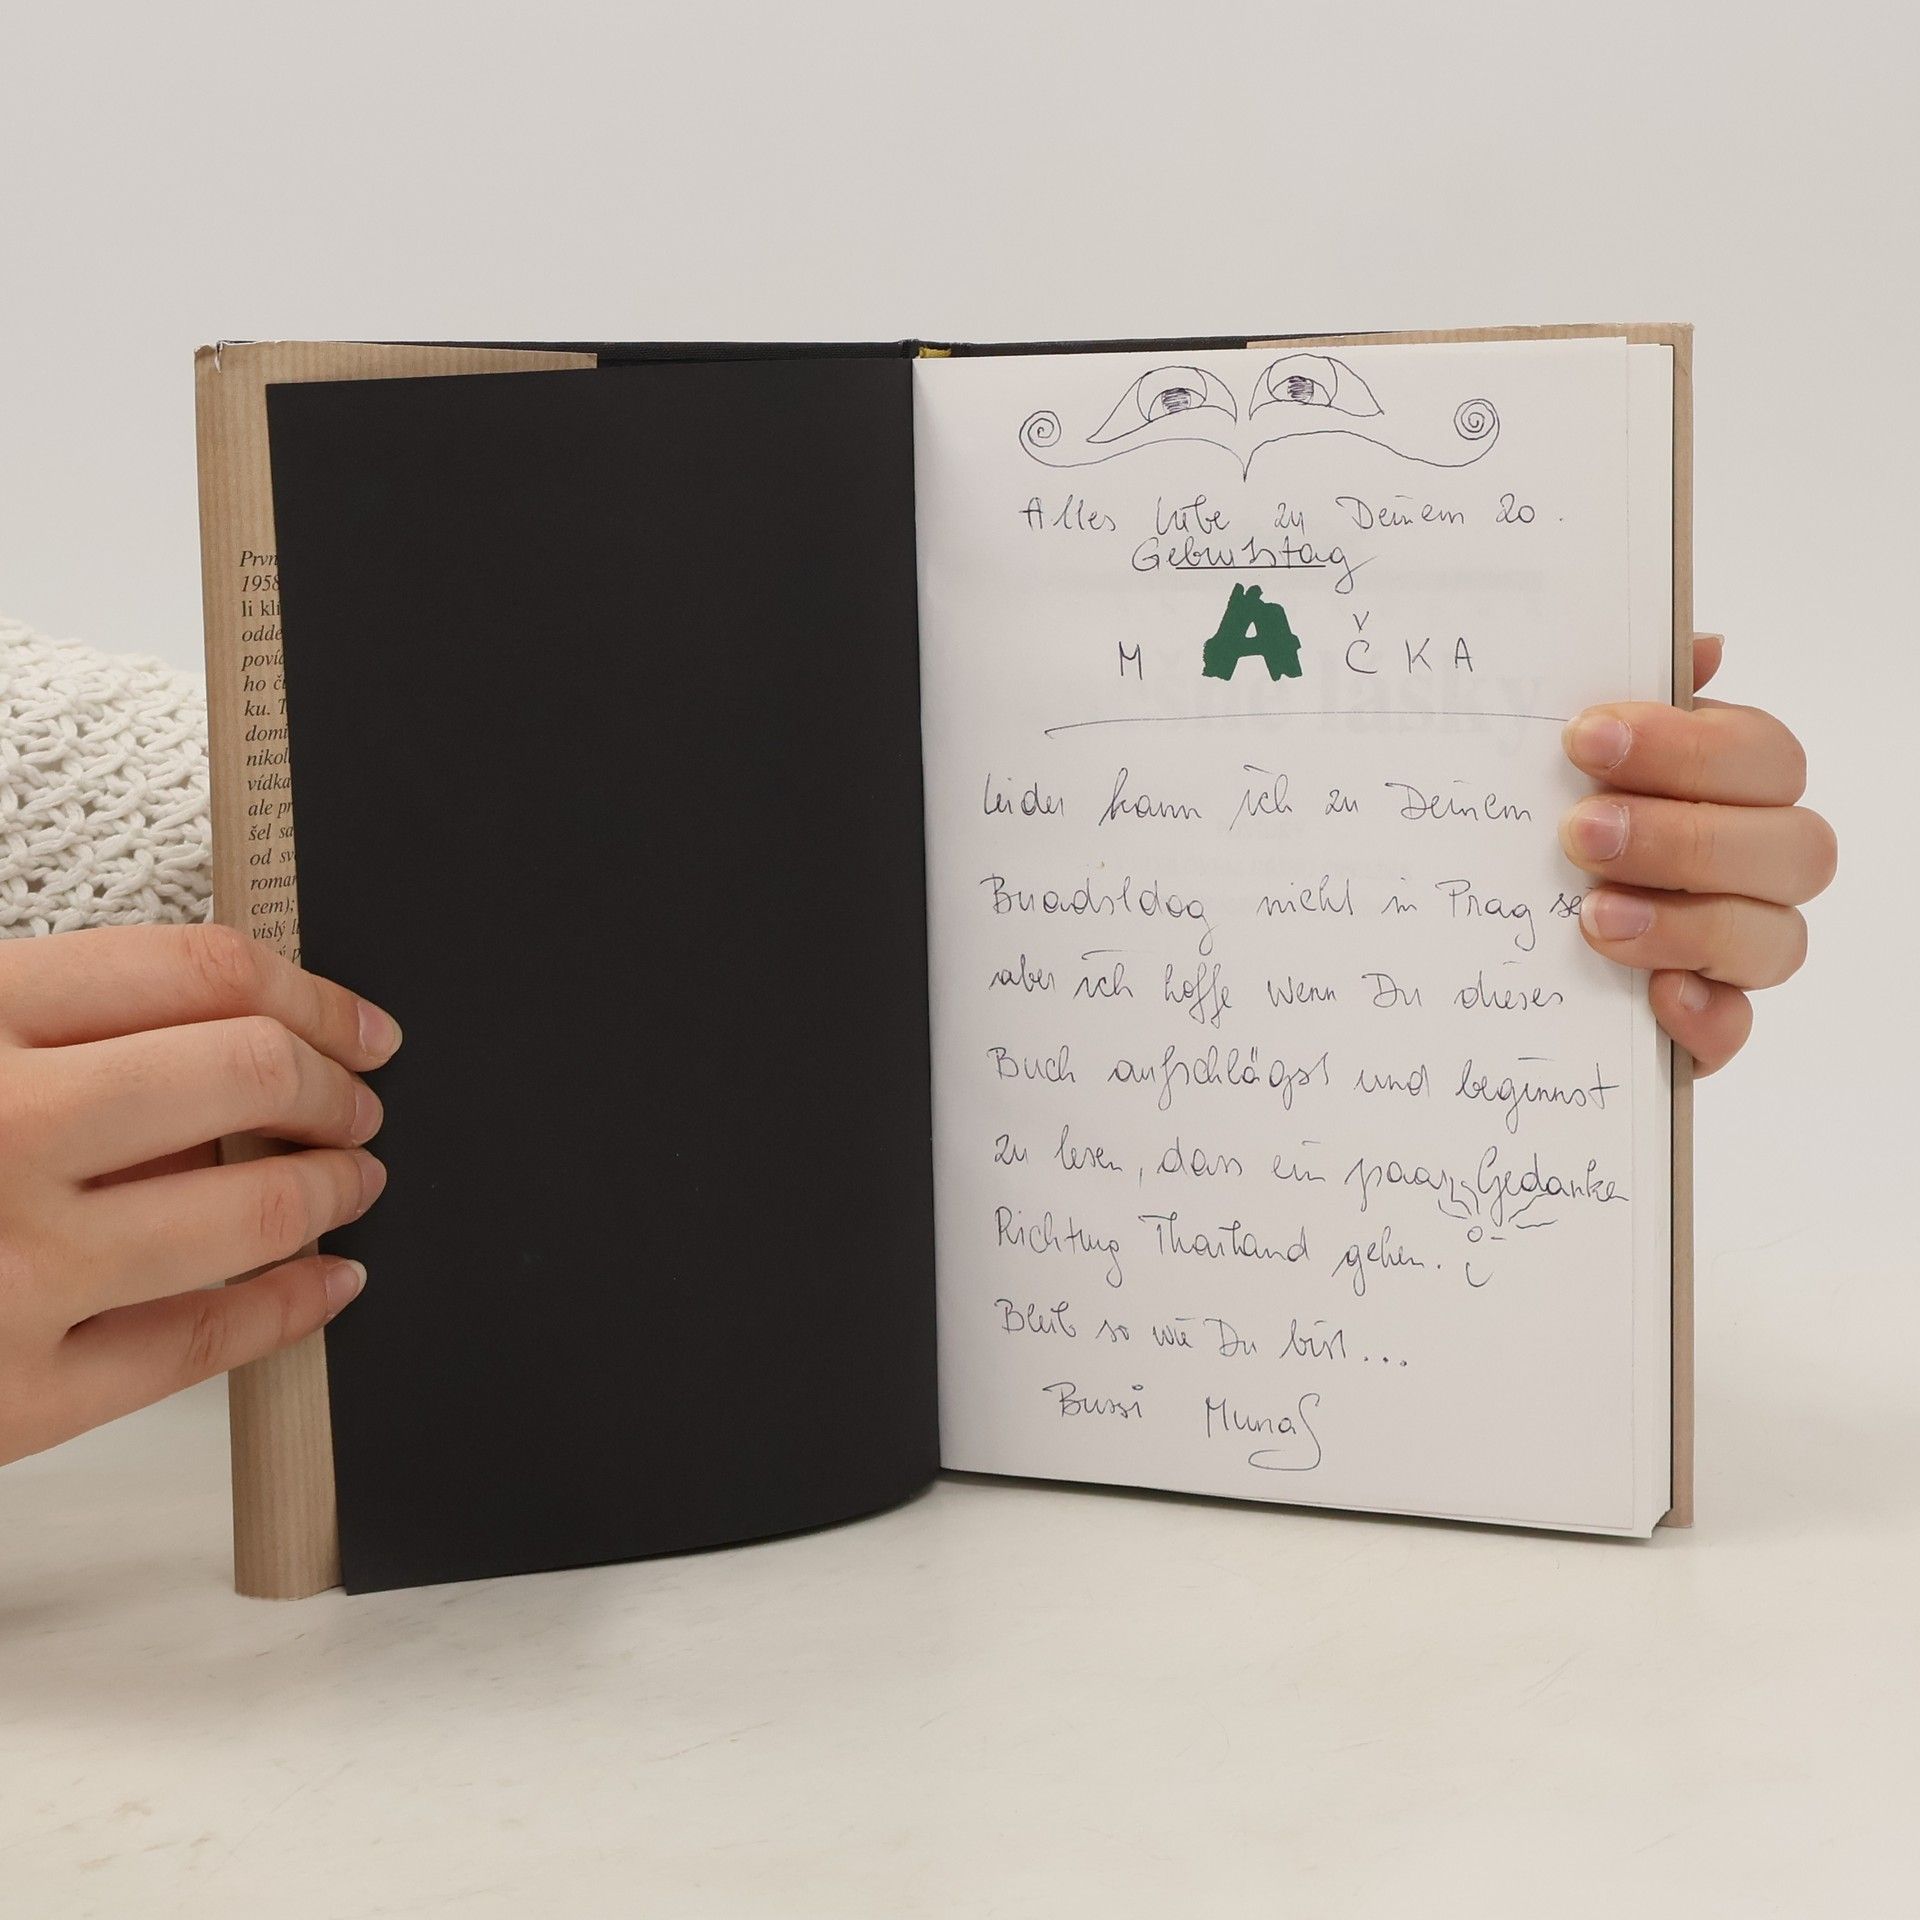 Prvn
1958
li kli
odde
povíd
ho č
ku. T
domi
nikol
vídka
ale pr
šel sa
od sv
roman
cem);
vislý l
ý p
Alles Liebe zu Deinem 20.
Geburtstag
M Ä Č K A
Leider kann ich zu Deinem
Buadsldog nicht in Prag se
aber ich hoffe wenn Du dieses
Buch aufschlägst und beginnst
zu lesen, dass ein paar Gedanken
Richtung Thailand gehen.
Bleib so wie Du bist...
Bussi